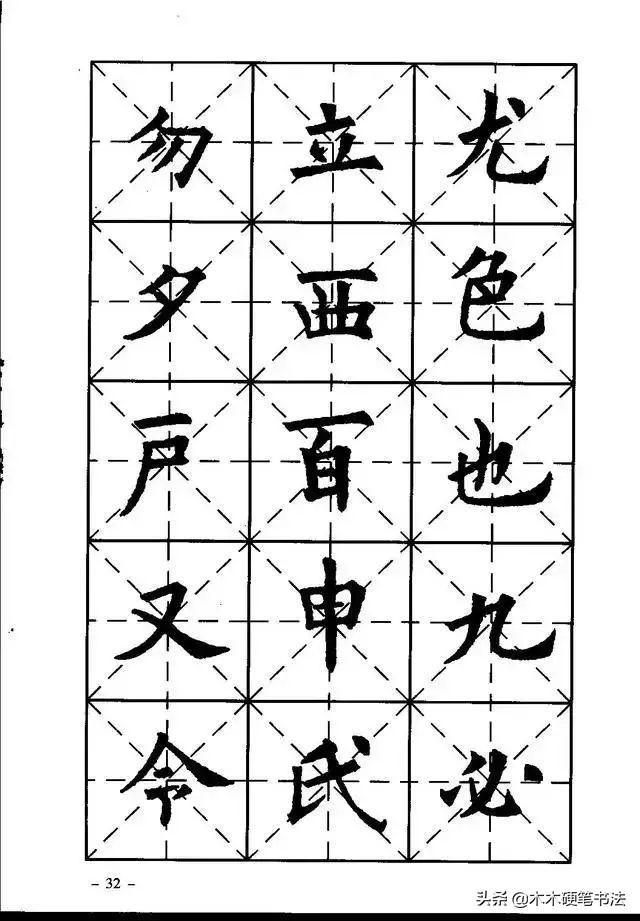 尤色也九必
立西百申氏
勿夕戸又令
- 32 -
头条@木木硬笔书法